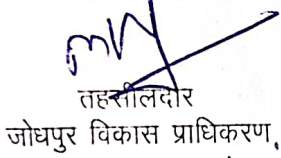 तहसीलदार
जोधपुर विकास प्राधिकरण,